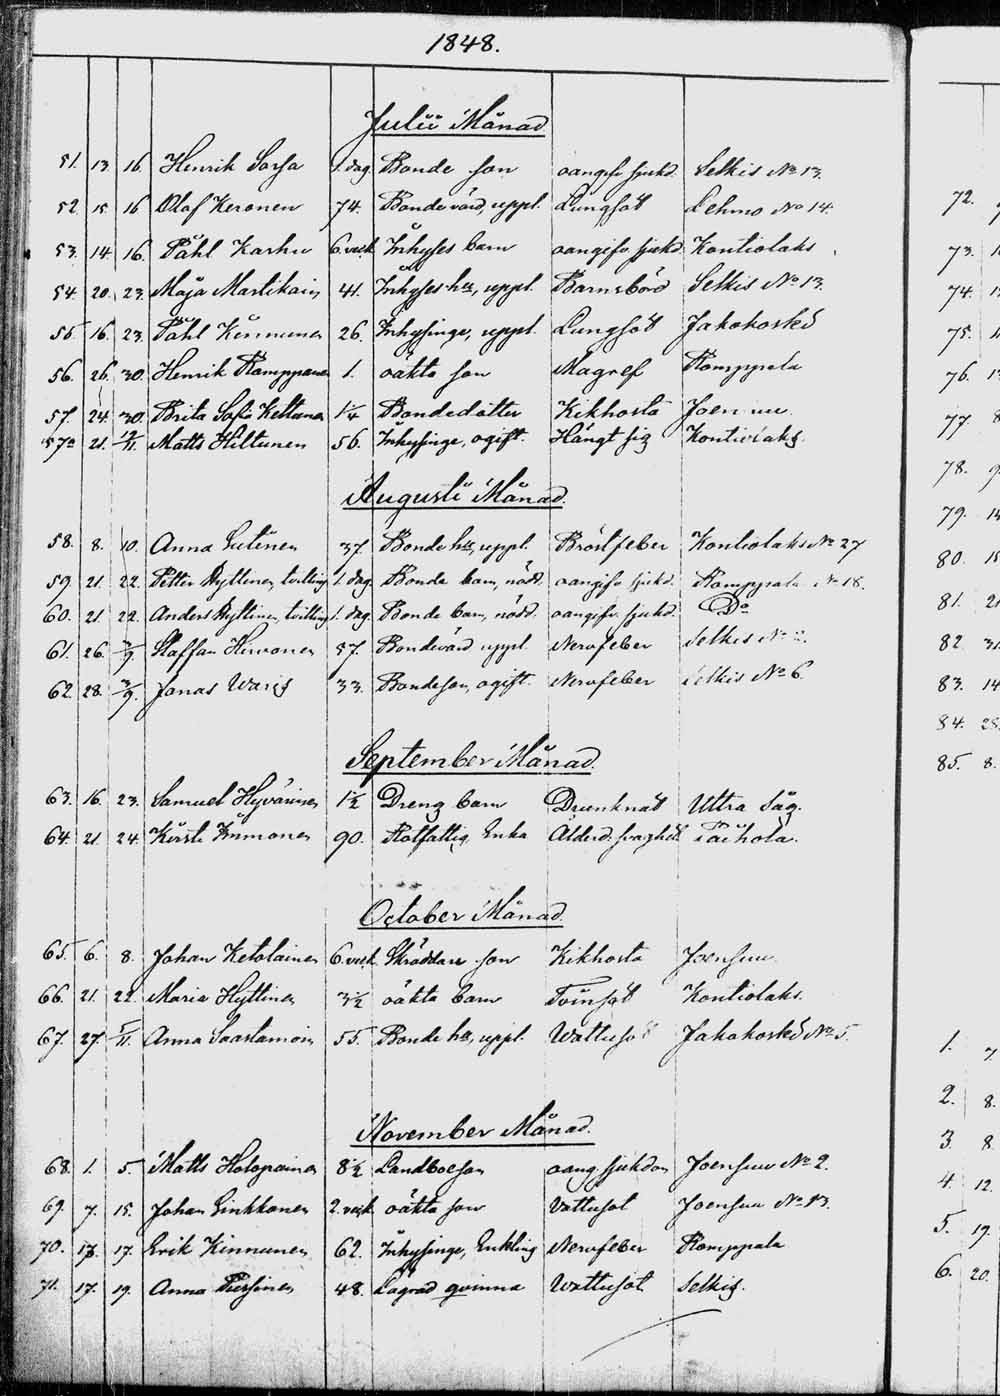 1848.
Julii Månad
51. 13. 16. Henrik Sorsa 1. dag Bonde son oangifv. sjukd. Selkis No 13.
52. 15. 16 Olof Keronen 74. Bonde värd, uppl. Lungsot Lehmo No 14.
53. 14. 16. Påhl Karhu 6 veck Inhyses barn oangifv. sjukd. Kontiolaks
54. 20. 23. Maja Martikain 41. Inhyses hu, uppl. Barnsbörd Selkis No 13.
55. 16. 23. Påhl Kinnunen 26. Inhysinge, uppl. Lungsot Jakokoski
56. 26. 30. Henrik Romppanen 1. oäkta son Magref Romppala
57. 24. 30. Brita Sofi Kettunen 1/4 Bondedotter Kikhosta Joensuu
57a 21. 12/11. Matts Hiltunen 56. Inhysinge, ogift. Hängt sig Kontiolaks.
Augusti Månad.
58. 8. 10. Anna Sutinen 37. Bonde hu, uppl. Bröstfeber Kontiolaks No 27
59 21. 22. Petter Hyttinen, tvilling 1. dag. Bonde barn, nödd. oangifv. sjukd. Romppala No 18.
60. 21. 22. Anders Hyttinen, tvilling 1. dag. Bonde barn, nödd. oangifv. sjukd. Do
61. 26. 3/9. Staffan Hirvonen 57. Bondevärd uppl. Nervfeber Selkis No 2.
62. 28. 3/9. Jonas Waris 33. Bondeson, ogift. Nervfeber Selkis No 6.
September Månad.
63. 16. 23. Samuel Hyvärinen 1 1/2 Dreng barn Drunknat Uttra Såg.
64. 21. 24. Kirsti Immonen 90. Rotfattig Enka Ålderd. svaghet Paihola.
October Månad.
65. 6. 8. Johan Ketolainen 6. veck Skräddare son Kikhosta Joensuu
66. 21. 22. Maria Hyttinen 3 1/2 oäkta barn Tvinsot Kontiolaks.
67. 27. 5/11. Anna Saastamoin 55. Bonde hu, uppl. Wattusot Jakokoski No 5.
November Månad.
68. 1. 5. Matts Holopainen 8 1/2 Landboeson oang. sjukdom Joensuu No 2.
69. 7. 15. Johan Sinkkonen 2. veck oäkta son Vattusot Joensuu No 13.
70. 17. Erik Kinnunen 62. Inhysinge, Enkling Nervfeber Romppala
71. 17. 19. Anna Piirsinen 48. Lägrad qvinna Wattusot Selkis.
72.
73.
74.
75.
76.
77.
78.
79.
80.
81. 21
82 31.
83. 14
84. 28.
85. 8.
1. 7.
2. 8.
3. 8.
4. 12.
5. 19.
6. 20.